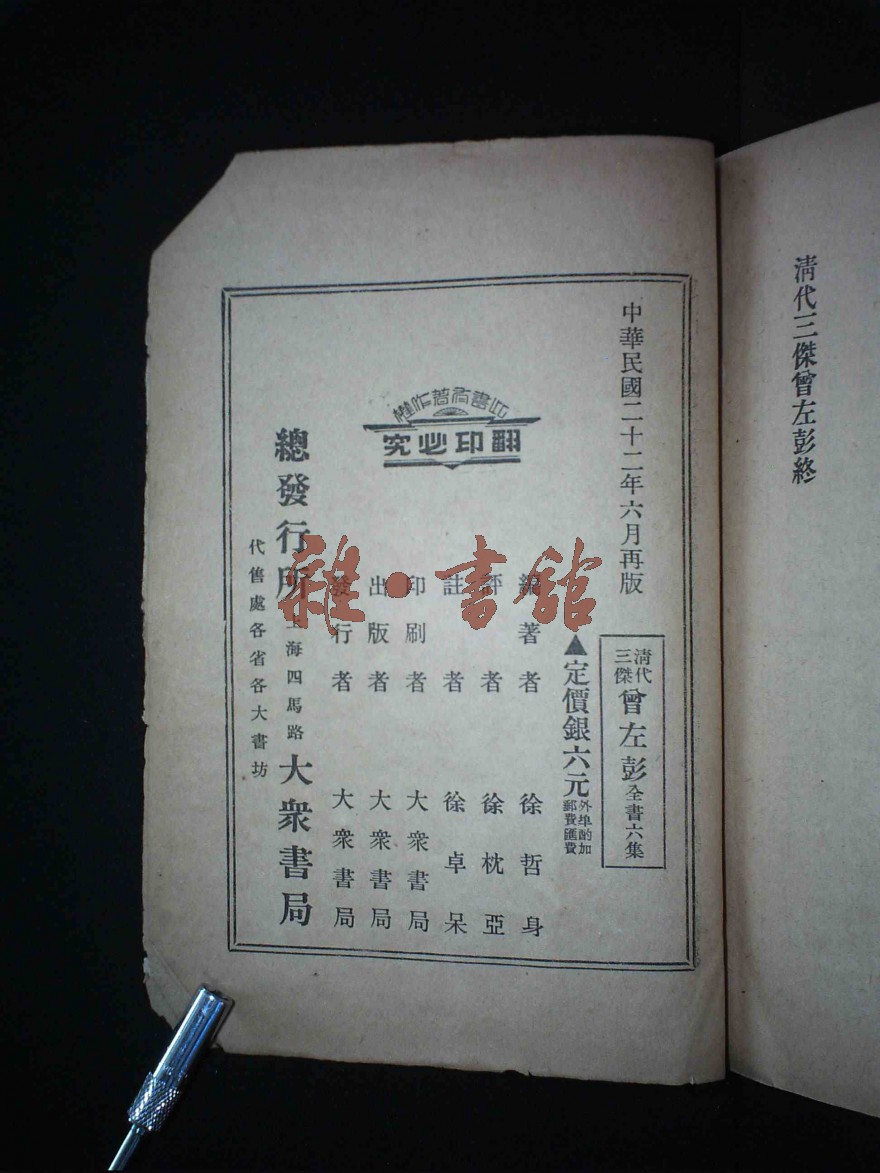 清代三傑曾左彭終
中華民國二十二年六月再版
清代三傑 曾左彭 全書六集
▲定價銀六元 外埠酌加郵費匯費
編著者 徐哲身
評者 徐枕亞
註者 徐卓呆
印刷者 大衆書局
出版者 大衆書局
發行者 大衆書局
此書有著作權
翻印必究
總發行所 上海四馬路 大衆書局
代售處各省各大書坊
雜·書館